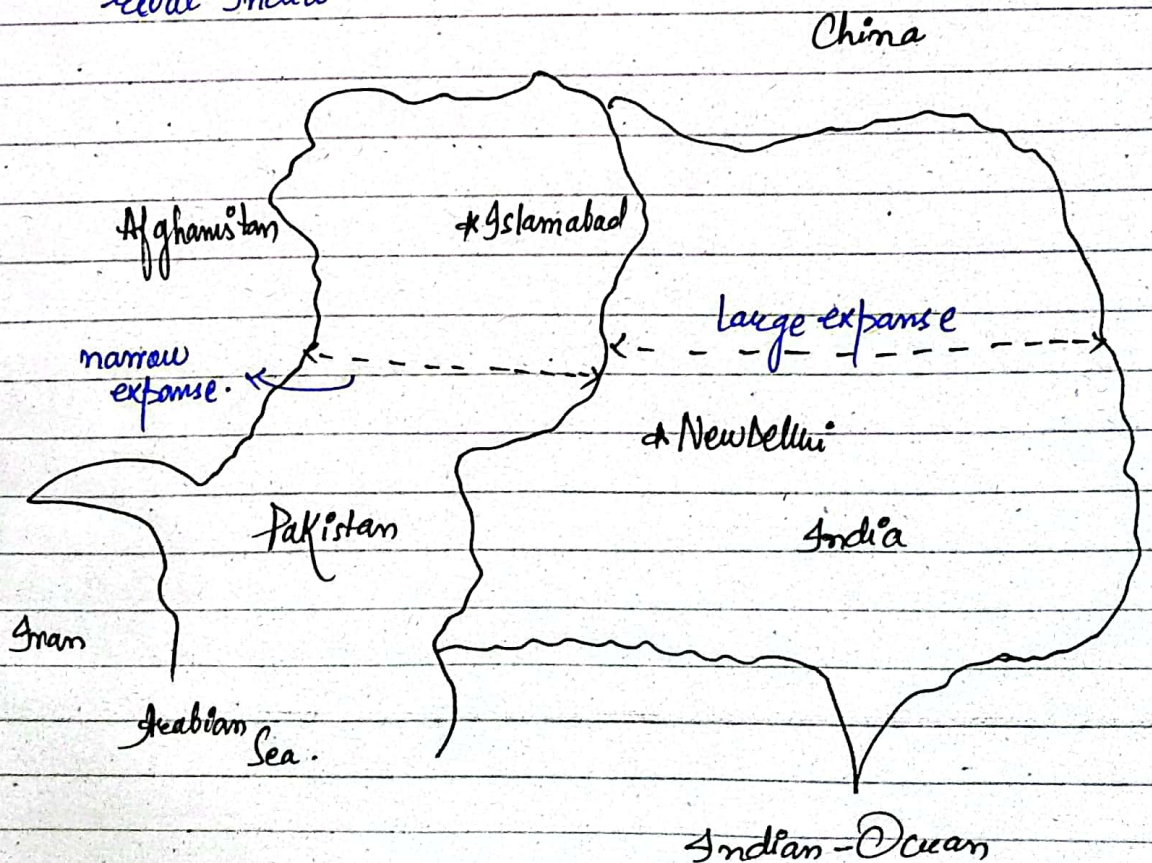 China
Afghanistan
*Islamabad
Large expanse
narrow
expanse.
*New Delhi
Pakistan
India
Iran
Arabian
Sea.
Indian-Ocean